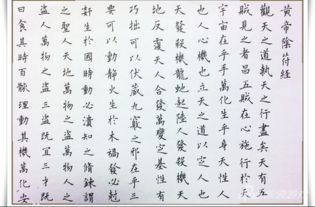 黃帝陰符經
觀天之道執天之行盡矣天有五
賊見之者昌五賊在心施行於天
宇宙在乎手萬化生乎身天性人
也人心機也立天之道以定人也
天發殺機龍蛇起陸人發殺機天
地反覆天人合發萬變定基性有
巧拙可以伏藏九竅之邪在乎三
要可以動靜火生於木禍發必尅
姧生於國時動必潰知之脩鍊謂
之聖人天地萬物之盜萬物人之
盜人萬物之盜三盜既宜三才既
曰食其時百骸理動其機萬化安